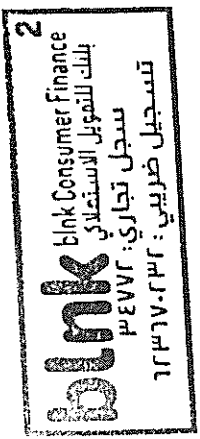 2
blnk
blnk Consumer Finance
بلنك للتمويل الاستهلاكي
سجل تجاري: ٣٤٧٧٢
تسجيل ضريبي: ٦٢٣٦٧٠٢٣٢